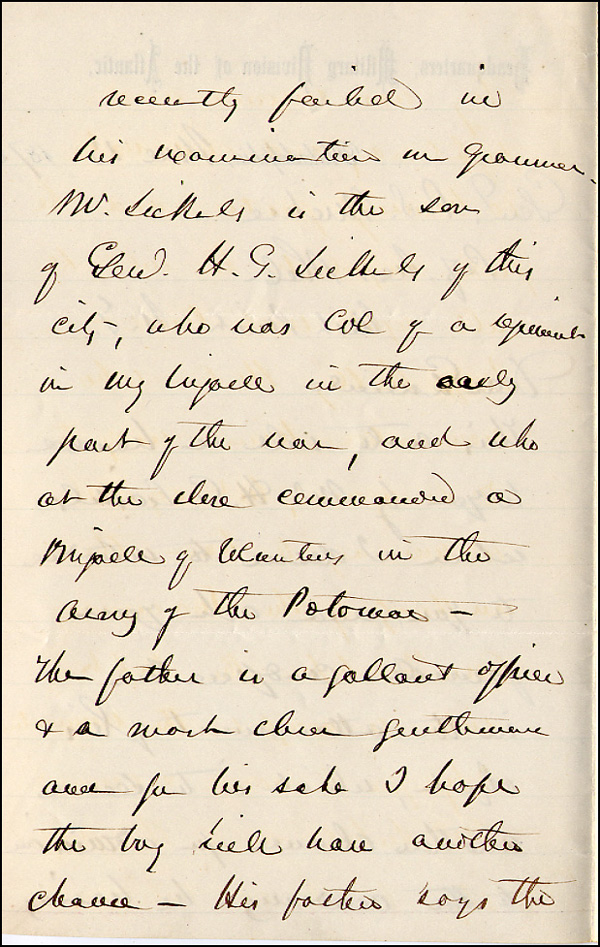 Headquarters, Military Division of the Atlantic,
recently failed in
his examination in Grammar.
Mr. Sickels is the son
of Genl. H. G. Sickels of this
city, who was Col of a regiment
in my brigade in the early
part of the war, and who
at the close commanded a
Brigade of Volunteers in the
Army of the Potomac —
The father is a gallant officer
& a most clever gentleman
and for his sake I hope
the boy will have another
chance — His father says the